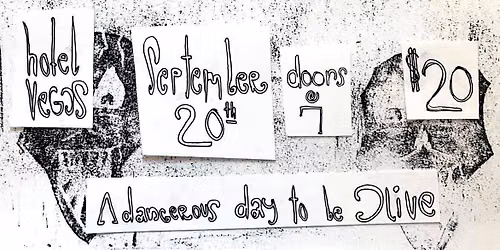 hotel
VEGAS
September
20th
doors
@
7
$20
A dangerous day to be Alive